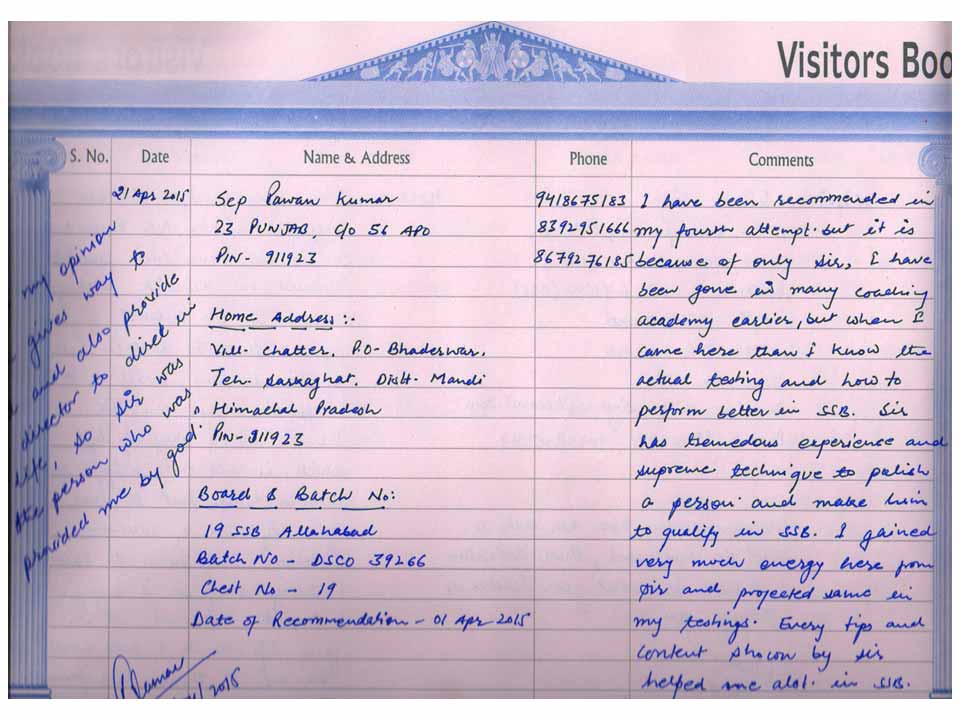 Visitors Boo
S. No.
Date
Name & Address
Phone
Comments
21 Apr 2015
Sep Pawan Kumar
23 PUNJAB, C/O 56 APO
PIN- 911923
Home Address:-
Vill- Chatter, P.O- Bhaderwar,
Teh- Sarkaghat, Distt- Mandi
Himachal Pradesh
PIN- 911923
Board & Batch No:
19 SSB Allahabad
Batch No - DSCO 39266
Chest No - 19
Date of Recommendation - 01 Apr 2015
9418675183
8392951666
8679276185
I have been recommended in
my fourth attempt. but it is
because of only sir, I have
been gone in many coaching
academy earlier, but when I
came here than I know the
actual testing and how to
perform better in SSB. Sir
has tremedous experience and
supreme technique to polish
a person and make him
to qualify in SSB. I gained
very much energy here from
sir and projected same in
my testings. Every tips and
content shown by sir
helped me alot. in SSB.
my opinion
gives way to
and also provide
director to direct in
life, so sir was
the person who was
provided me by god.
2015